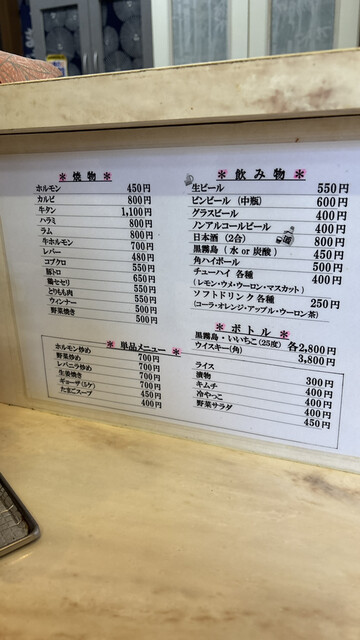 ＊ 焼 物 ＊
ホルモン 450円
カルビ 800円
牛タン 1,100円
ハラミ 800円
ラム 800円
牛ホルモン 700円
レバー 480円
コブクロ 550円
豚トロ 650円
鶏セセリ 550円
とりもも肉 550円
ウィンナー 500円
野菜焼き 500円
＊ 飲 み 物 ＊
生ビール 550円
ビンビール (中瓶) 600円
グラスビール 400円
ノンアルコールビール 400円
日本酒 (2合) 800円
黒霧島 ( 水 or 炭酸 ) 450円
角ハイボール 500円
チューハイ 各種 400円
(レモン・ウメ・ウーロン・マスカット)
ソフトドリンク 各種 250円
(コーラ・オレンジ・アップル・ウーロン茶)
＊ ボ ト ル ＊
黒霧島・いいちこ(25度) 各2,800円
ウイスキー(角) 3,800円
＊ 単品メニュー ＊
ホルモン炒め 700円
野菜炒め 700円
レバニラ炒め 700円
生姜焼き 700円
ギョーザ(5ケ) 450円
たまごスープ 400円
ライス 300円
漬物 400円
キムチ 400円
冷やっこ 400円
野菜サラダ 450円